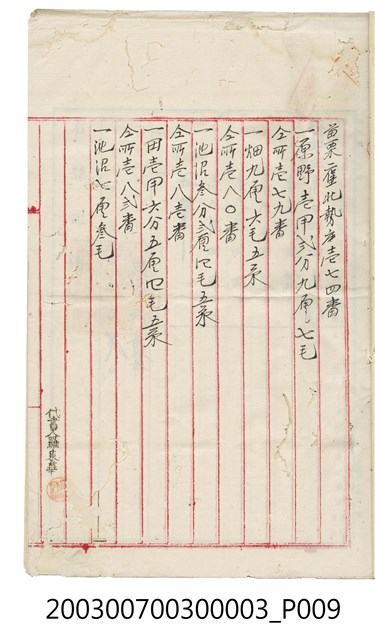 苗栗庄北勢庄壱七四番
一原野壱甲弍分九厘七毛
仝所壱七九番
一畑九厘六毛五糸
仝所壱八〇番
一池沼叄分弍厘四毛五糸
仝所壱八壱番
一田壱甲六分五厘四毛五糸
仝所壱八弍番
一池沼七厘叄毛
代書人
200300700300003_P009